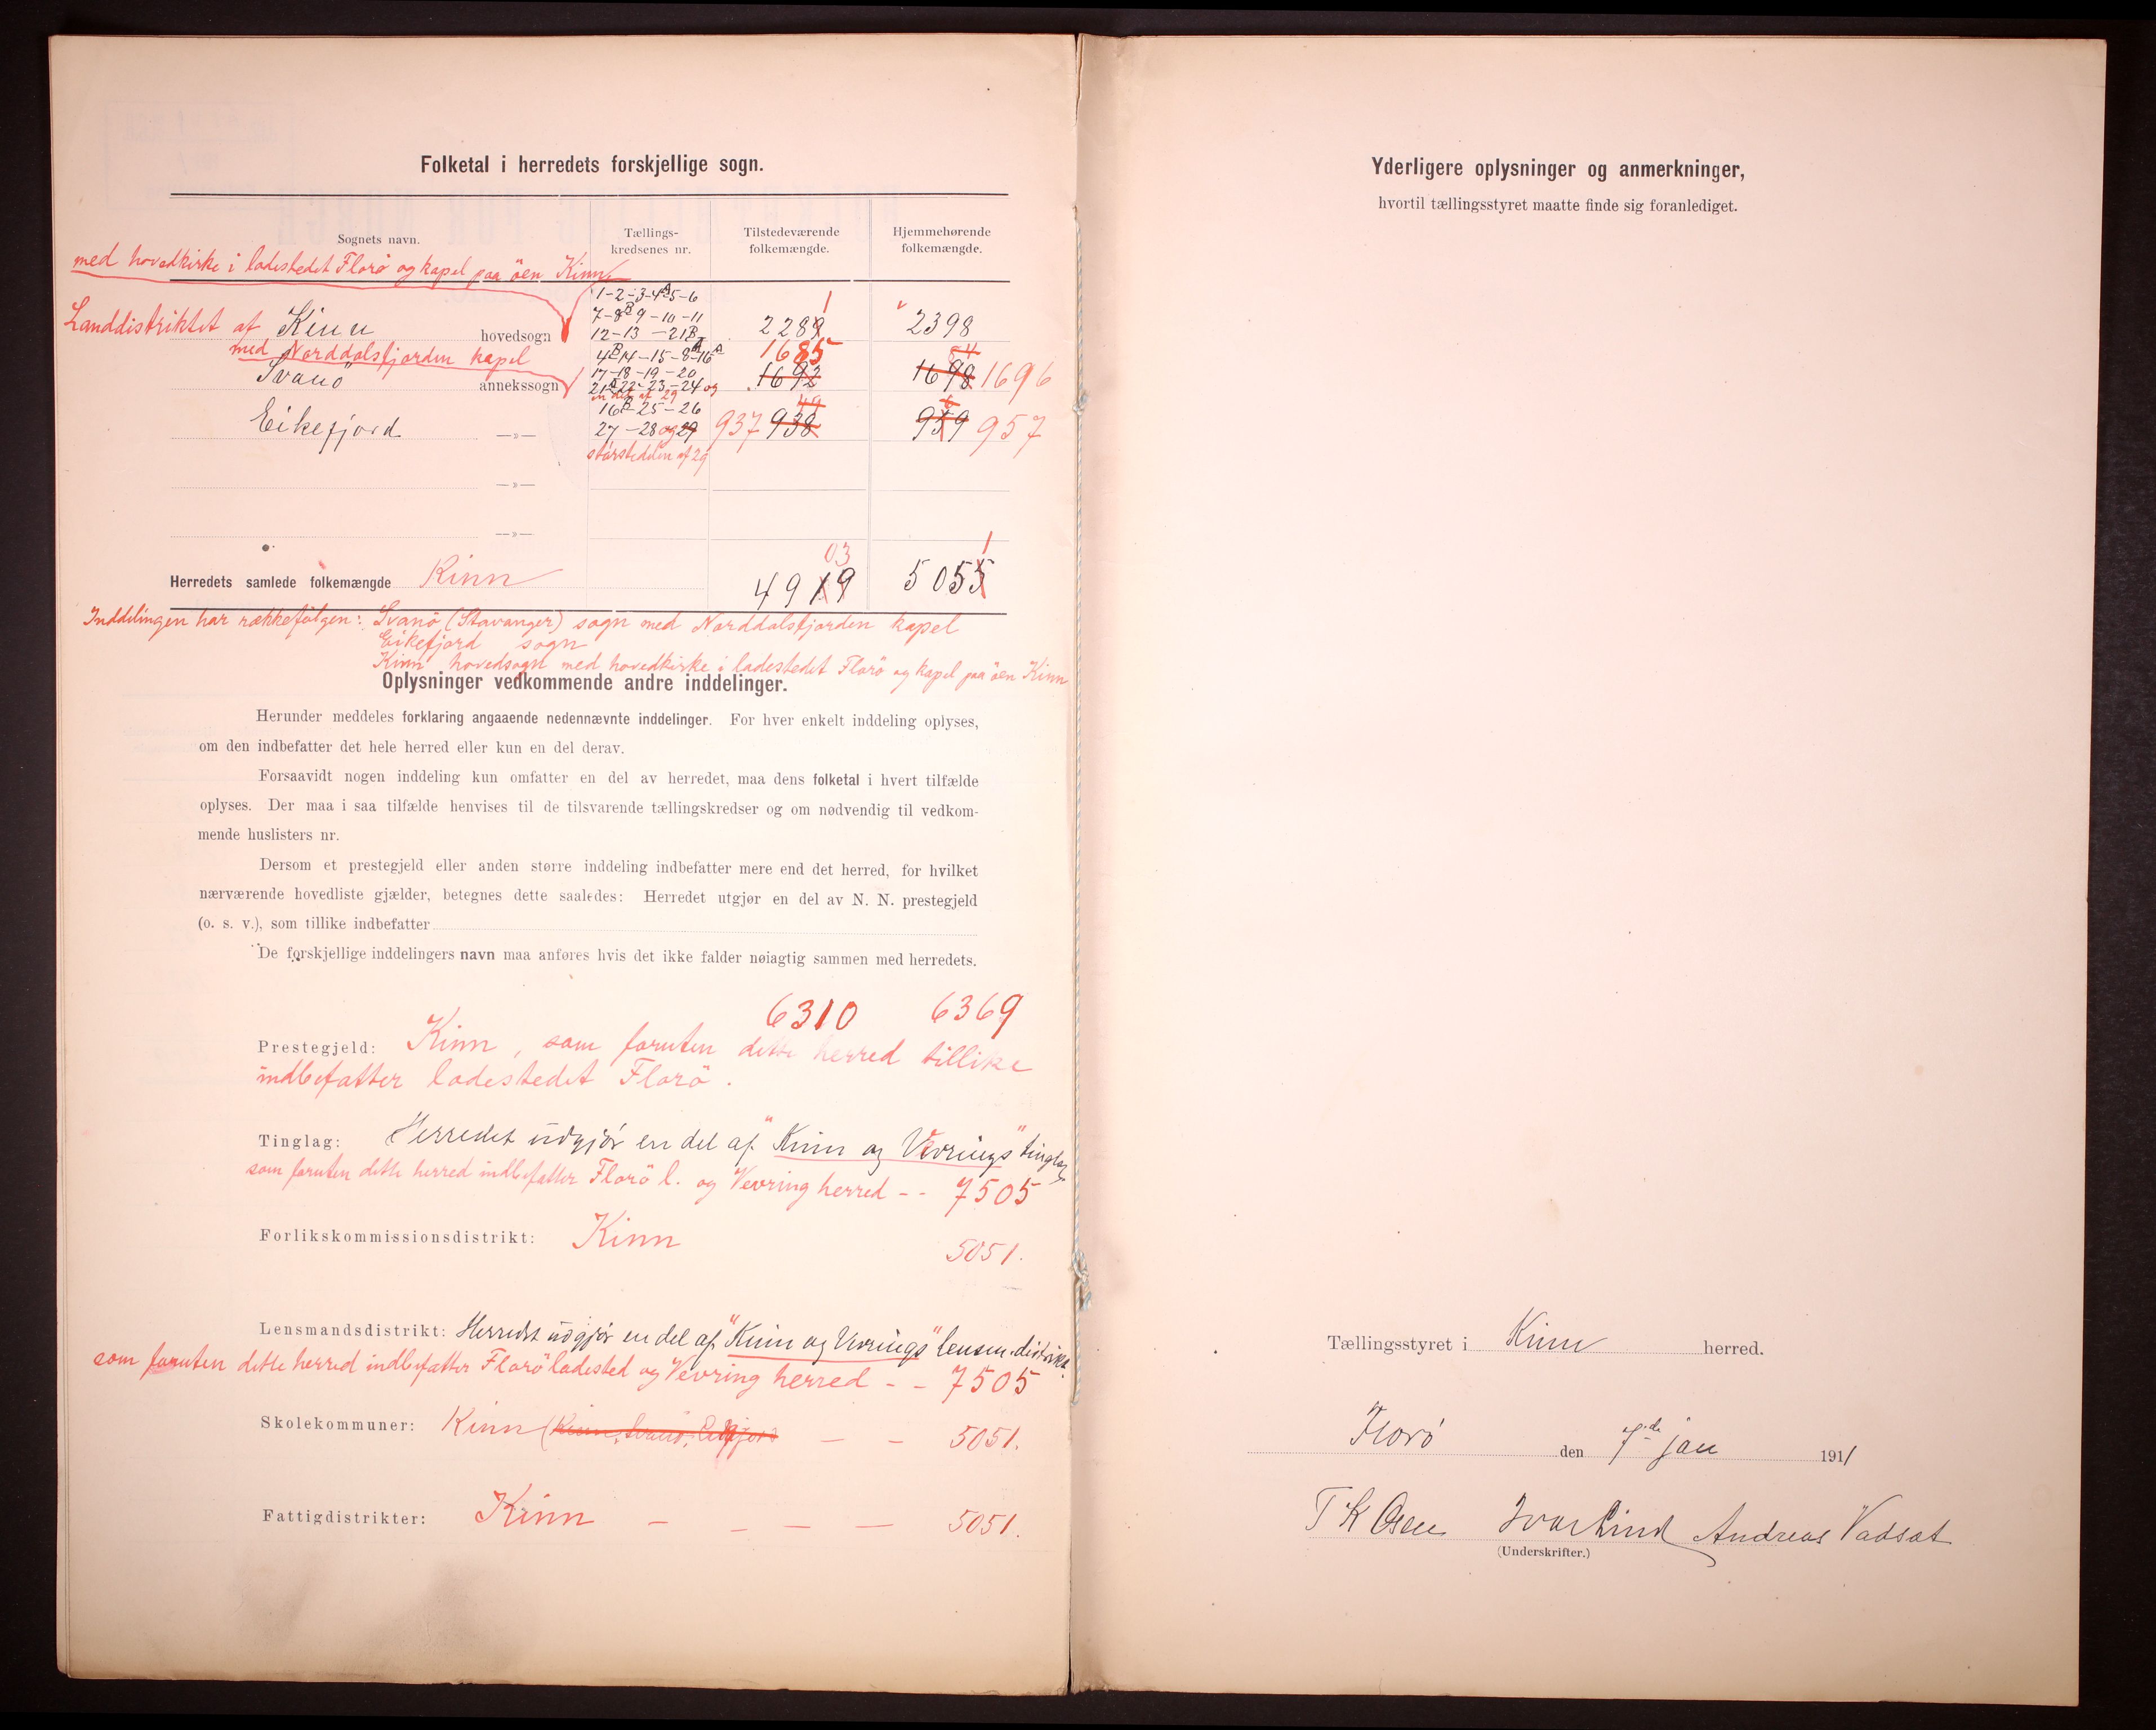 Folketal i herredets forskjellige sogn.
Sognets navn.
Tællings-
kredsenes nr.
Tilstedeværende
folkemængde.
Hjemmehørende
folkemængde.
med hovedkirke i ladestedet Florö og kapel paa öen Kinn
1-2-3-4A-5-6
7-8B-9-10-11
12-13-21B
Landdistriktet af Kinn hovedsogn
2289 1
2398
med Norddalsfjorden kapel
4B-14-15-8A-16A
17-18-19-20
21A-22-23-24 og
en del af 29
Svanö annekssogn
1685
1692
1698 1696
16B-25-26
27-28 og 29
størstedelen af 29
Eikefjord —»—
937 938
959 957
—»—
—»—
03
1
Herredets samlede folkemængde Kinn
4919
5055
Inddelingen har rækkefölgen: Svanö (Stavanger) sogn med Norddalsfjorden kapel
Eikefjord sogn
Kinn hovedsogn med hovedkirke i ladestedet Florö og kapel paa öen Kinn
Oplysninger vedkommende andre inddelinger.
Herunder meddeles forklaring angaaende nedennævnte inddelinger. For hver enkelt inddeling oplyses,
om den indbefatter det hele herred eller kun en del derav.
Forsaavidt nogen inddeling kun omfatter en del av herredet, maa dens folketal i hvert tilfælde
oplyses. Der maa i saa tilfælde henvises til de tilsvarende tællingskredser og om nødvendig til vedkom-
mende huslisters nr.
Dersom et prestegjeld eller anden større inddeling indbefatter mere end det herred, for hvilket
nærværende hovedliste gjælder, betegnes dette saaledes: Herredet utgjør en del av N. N. prestegjeld
(o. s. v.), som tillike indbefatter
De forskjellige inddelingers navn maa anføres hvis det ikke falder nøiagtig sammen med herredets.
6310 6369
Prestegjeld: Kinn, som foruten dette herred tillike
indbefatter ladestedet Florö.
Tinglag: Herredet udgjör en del af "Kinn og Vevrings" tinglag
som foruten dette herred indbefatter Florö l. og Vevring herred - - 7505
Forlikskommissionsdistrikt: Kinn 5051.
Lensmandsdistrikt: Herredet udgjör en del af "Kinn og Vevrings" lensm.distrikt.
som foruten dette herred indbefatter Florö ladested og Vevring herred - - 7505
Skolekommuner: Kinn (Kinn, Svanö, Eikefjord — — 5051.
Fattigdistrikter: Kinn — — — — 5051.
Yderligere oplysninger og anmerkninger,
hvortil tællingsstyret maatte finde sig foranlediget.
Tællingsstyret i Kinn herred.
Florö den 7de jan 1911
T K Osen Ivar Lind Andreas Vadsæt
(Underskrifter.)